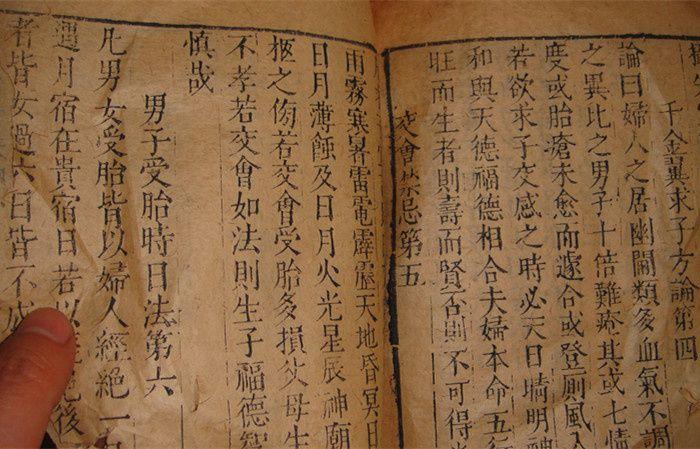 千金翼求子方論第四
論曰婦人之居幽閫類多血氣不調
之異比之男子十倍難療其或七情
度或胎瘡未愈而遽合或登厠風入
若欲求子交感之時必天日晴明神
和與天德福德相合夫婦本命五行
旺而生者則壽而賢否則不可得
交會禁忌第五
雨霧寒暑雷電霹靂天地昏冥日
日月薄蝕及日月火光星辰神廟
柩之傍若交會受胎多損父母生
不孝若交會如法則生子福德智
慎哉
男子受胎時日法第六
凡男女受胎皆以婦人經絕一
遇月宿在貴宿日若以絕後
者皆女過六日皆不成